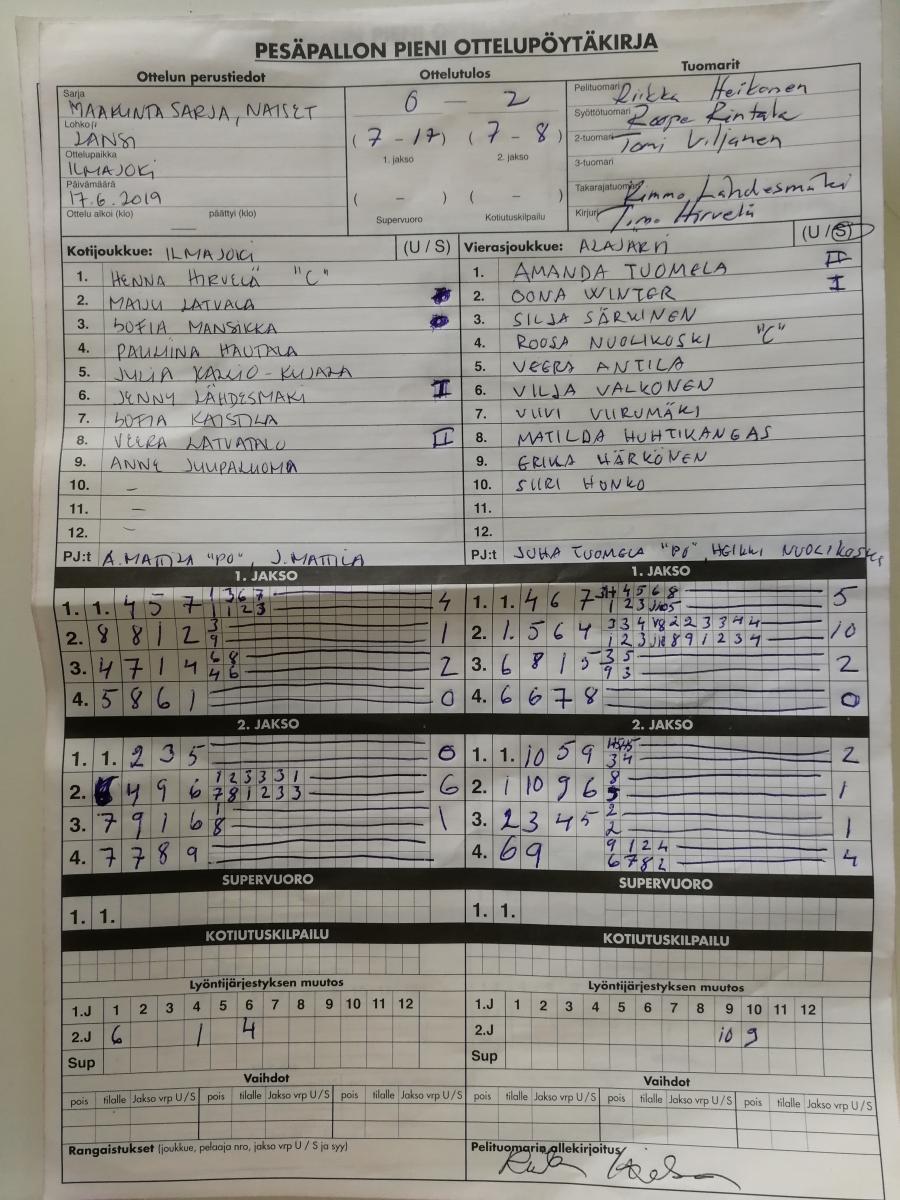 PESÄPALLON PIENI OTTELUPÖYTÄKIRJA
Ottelun perustiedot
Ottelutulos
Tuomarit
Sarja
MAAKUNTASARJA, NAISET
Lohko
LÄNSI
Ottelupaikka
ILMAJOKI
Päivämäärä
17.6.2019
Ottelu alkoi (klo) päättyi (klo)
6 – 2
(7 – 17) (7 – 8)
1. jakso 2. jakso
( – ) ( – )
Supervuoro Kotiutuskilpailu
Pelituomari Riikka Heikonen
Syöttötuomari Roope Rintala
2-tuomari Tomi Viljanen
3-tuomari
Takarajatuomari Kimmo Lähdesmäki
Kirjuri Timo Hirvelä
Kotijoukkue: ILMAJOKI (U / S)
1. HENNA HIRVELÄ "C"
2. MAIJU LATVALA
3. SOFIA MANSIKKA
4. PAULIINA HAUTALA
5. JULIA KALLIO-KUJALA
6. JENNY LÄHDESMÄKI I
7. SOFIA KAISTILA
8. VEERA LATVATALO II
9. ANNE JUUPALUOMA
10. –
11. –
12. –
PJ:t A. MATTILA "PO", J. MATTILA
Vierasjoukkue: ALAJÄRVI (U / S)
1. AMANDA TUOMELA II
2. OONA WINTER I
3. SILJA SÄRKINEN
4. ROOSA NUOLIKOSKI "C"
5. VEERA ANTILA
6. VILJA VALKONEN
7. VIIVI VIIRUMÄKI
8. MATILDA HUHTIKANGAS
9. ERIKA HÄRKÖNEN
10. SIIRI HONKO
11.
12.
PJ:t JUHA TUOMELA "PO" HEIKKI NUOLIKOSKI
1. JAKSO
1. 1. 4 5 7 1 3 6 7 4
1 1 2 3
2. 8 8 1 2 3 1
9
3. 4 7 1 4 6 8 2
4 6
4. 5 8 6 1 0
1. JAKSO
1. 1. 4 6 7 4 5 6 8 5
1 2 3
2. 1. 5 6 4 3 3 4 2 2 3 3 4 4 10
1 2 3 8 9 1 2 3 4
3. 6 8 1 5 3 5 2
9 3
4. 6 6 7 8 0
2. JAKSO
1. 1. 2 3 5 0
2. 4 9 6 1 2 3 3 3 1 6
7 8 1 2 3 3
3. 7 9 1 6 1 1
8
4. 7 7 8 9
2. JAKSO
1. 1. 10 5 9 2
3 4
2. 1 10 9 6 8 1
3. 2 3 4 5 2 1
2
4. 6 9 9 1 2 4 4
6 7 8 2
SUPERVUORO
1. 1.
SUPERVUORO
1. 1.
KOTIUTUSKILPAILU
KOTIUTUSKILPAILU
Lyöntijärjestyksen muutos
1.J 1 2 3 4 5 6 7 8 9 10 11 12
2.J 6 1 4
Sup
Lyöntijärjestyksen muutos
1.J 1 2 3 4 5 6 7 8 9 10 11 12
2.J 10 9
Sup
Vaihdot
pois tilalle Jakso vrp U / S pois tilalle Jakso vrp U / S pois tilalle Jakso vrp U / S
Vaihdot
pois tilalle Jakso vrp U / S pois tilalle Jakso vrp U / S pois tilalle Jakso vrp U / S
Rangaistukset (joukkue, pelaaja nro, jakso vrp U / S ja syy)
Pelituomarin allekirjoitus